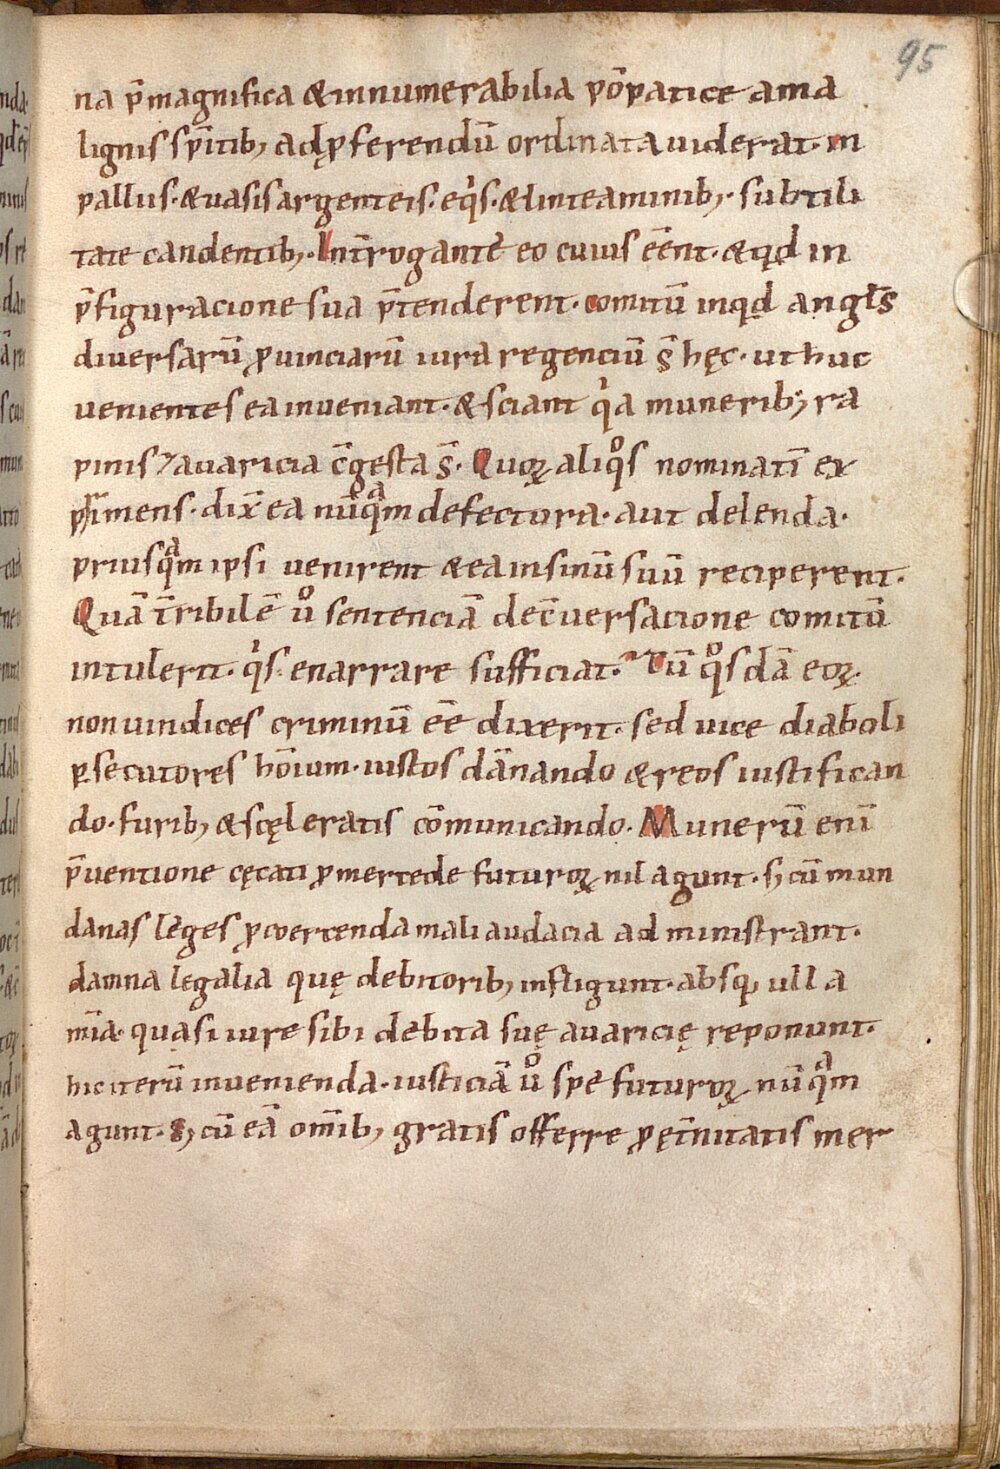 95
na p̄magnifica &innumerabilia pōpatice ama
lignis sp̄itib; adp̱ferendū ordinata uiderat· in
pallus·&uasis argenteis·eq̇s·&linteaminib;· subtili
tate candentib;· Int̄rogante eo cuius eēnt·&qd in
p̄figuracione sua p̄tenderent· comitū inqd angl̄s
diuersarū ꝓuinciarū iura regenciū s̄ hęc· ut huc
uenientes ea inueniant·&sciant q̇a munerib; ra
pinis ⁊auaricia c̄gesta s̄· Quoꝝ aliqͦs nominatī ex
p̄imens·dix̄ ea nūqͣm defectura· aut delenda·
priusqͣm ipsi uenirent &ea insinū suū reciperent·
Quā t̄ribilē uͦ sentenciā dec̄uersacione comitū
intulerit· q̇s enarrare sufficiat· Cū qͦsdā eoꝝ
non uindices criminū eē dixerit· sed uice diaboli
ꝑsecutores hōium·iustos dānando &reos iustifican
do·furib; &scęleratis cōmunicando· Munerū enī
p̄uentione cęcati ꝓmertede futuroꝝ nil agunt· s; cū mun
danas leges ꝓuertenda mali audacia administrant·
damna legalia quę debitorib; infligunt·absq; ulla
mīa· quasi iure sibi debita suę auaricię reponunt·
hic iterū inuenienda·iusticiā uͦ spe futuroꝝ nūqͣm
agunt· s; cū eā om̄ib; gratis offerre ꝓ ęt̄nitatis mer